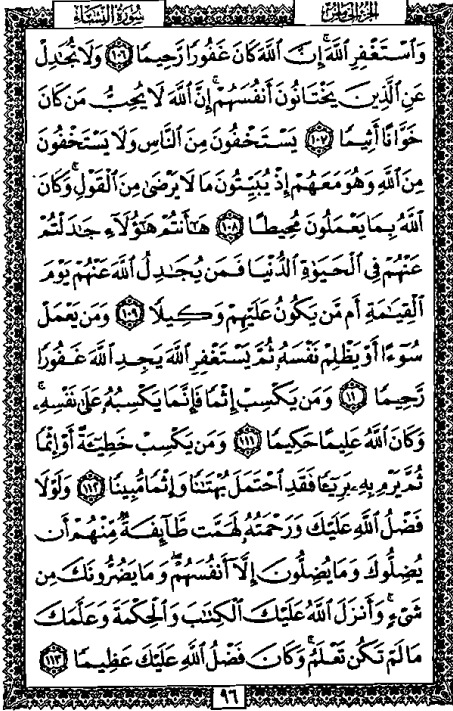 الجزء الخامس سورة النساء
وَاسْتَغْفِرِ اللَّهَ ۖ إِنَّ اللَّهَ كَانَ غَفُورًا رَّحِيمًا ﴿١٠٦﴾ وَلَا تُجَادِلْ
عَنِ الَّذِينَ يَخْتَانُونَ أَنفُسَهُمْ ۚ إِنَّ اللَّهَ لَا يُحِبُّ مَن كَانَ
خَوَّانًا أَثِيمًا ﴿١٠٧﴾ يَسْتَخْفُونَ مِنَ النَّاسِ وَلَا يَسْتَخْفُونَ
مِنَ اللَّهِ وَهُوَ مَعَهُمْ إِذْ يُبَيِّتُونَ مَا لَا يَرْضَىٰ مِنَ الْقَوْلِ ۚ وَكَانَ
اللَّهُ بِمَا يَعْمَلُونَ مُحِيطًا ﴿١٠٨﴾ هَا أَنتُمْ هَٰؤُلَاءِ جَادَلْتُمْ
عَنْهُمْ فِي الْحَيَاةِ الدُّنْيَا فَمَن يُجَادِلُ اللَّهَ عَنْهُمْ يَوْمَ
الْقِيَامَةِ أَم مَّن يَكُونُ عَلَيْهِمْ وَكِيلًا ﴿١٠٩﴾ وَمَن يَعْمَلْ
سُوءًا أَوْ يَظْلِمْ نَفْسَهُ ثُمَّ يَسْتَغْفِرِ اللَّهَ يَجِدِ اللَّهَ غَفُورًا
رَّحِيمًا ﴿١١٠﴾ وَمَن يَكْسِبْ إِثْمًا فَإِنَّمَا يَكْسِبُهُ عَلَىٰ نَفْسِهِ ۚ
وَكَانَ اللَّهُ عَلِيمًا حَكِيمًا ﴿١١١﴾ وَمَن يَكْسِبْ خَطِيئَةً أَوْ إِثْمًا
ثُمَّ يَرْمِ بِهِ بَرِيئًا فَقَدِ احْتَمَلَ بُهْتَانًا وَإِثْمًا مُّبِينًا ﴿١١٢﴾ وَلَوْلَا
فَضْلُ اللَّهِ عَلَيْكَ وَرَحْمَتُهُ لَهَمَّت طَّائِفَةٌ مِّنْهُمْ أَن
يُضِلُّوكَ وَمَا يُضِلُّونَ إِلَّا أَنفُسَهُمْ ۖ وَمَا يَضُرُّونَكَ مِن
شَيْءٍ ۚ وَأَنزَلَ اللَّهُ عَلَيْكَ الْكِتَابَ وَالْحِكْمَةَ وَعَلَّمَكَ
مَا لَمْ تَكُن تَعْلَمُ ۚ وَكَانَ فَضْلُ اللَّهِ عَلَيْكَ عَظِيمًا ﴿١١٣﴾
٩٦